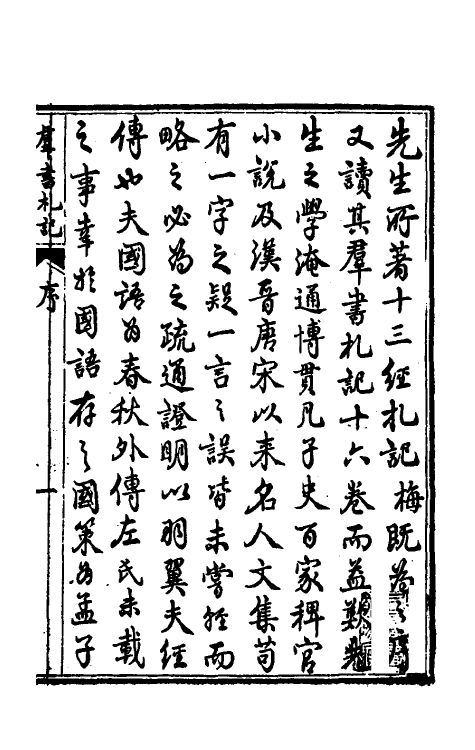 先生所著十三經札記梅既為之
又讀其羣書札記十六卷而益歎
生之學淹通博貫凡子史百家稗官
小說及漢晉唐宋以来名人文集苟
有一字之疑一言之誤皆未嘗輕而
略之必為之疏通證明以羽翼夫經
傳也夫國語為春秋外傳左氏未載
之事幸於國語存之國策為孟子
羣書札記
序
一